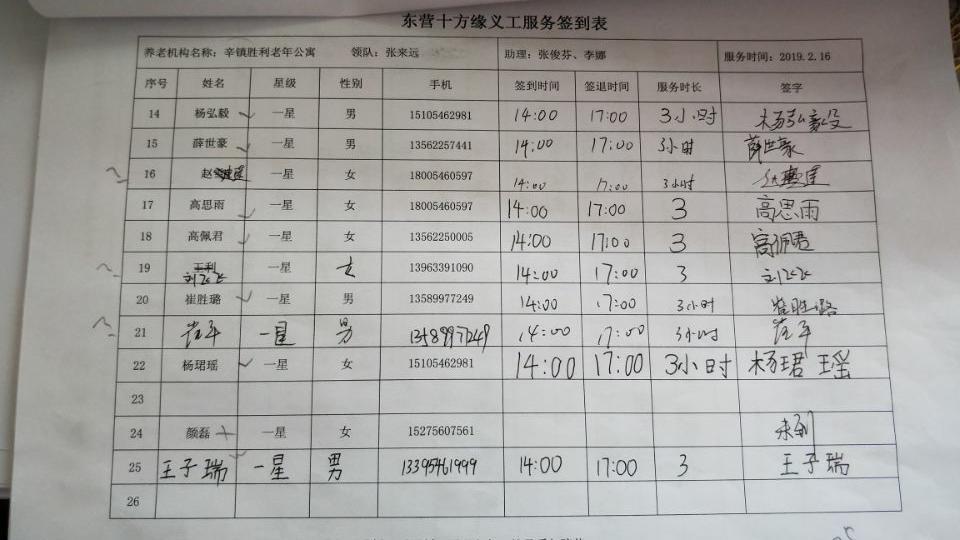 东营十方缘义工服务签到表
养老机构名称：辛镇胜利老年公寓 领队：张来远 助理：张俊芬、李娜 服务时间：2019.2.16
序号 姓名 星级 性别 手机 签到时间 签退时间 服务时长 签字
14 杨弘毅 一星 男 15105462981 14:00 17:00 3小时 杨弘毅
15 薛世豪 一星 男 13562257441 14:00 17:00 3小时 薛世豪
16 赵 一星 女 18005460597 14:00 17:00 3小时
17 高思雨 一星 女 18005460597 14:00 17:00 3 高思雨
18 高佩君 一星 女 13562250005 14:00 17:00 3 高佩君
19 王利 一星 女 13963391090 14:00 17:00 3
20 崔胜璐 一星 男 13589977249 14:00 17:00 3小时 崔胜璐
21 崔军 一星 男 13589977249 14:00 17:00 3小时 崔军
22 杨珺瑶 一星 女 15105462981 14:00 17:00 3小时 杨珺瑶
23
24 颜磊 一星 女 15275607561 未到
25 王子瑞 一星 男 13395461999 14:00 17:00 3 王子瑞
26